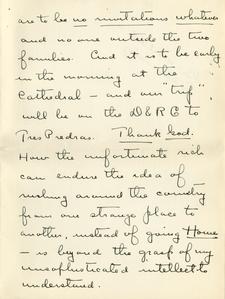 are to be no invitations whatever
and no one outside the two
families. And it is to be early
in the morning at the
Cathedral – and our "trip"
will be on the D & R G to
Tres Piedras. Thank God.
How the unfortunate rich
can endure the idea of
rushing around the country
from one strange place to
another, instead of going Home
– is beyond the grasp of my
unsophisticated intellect to
understand.